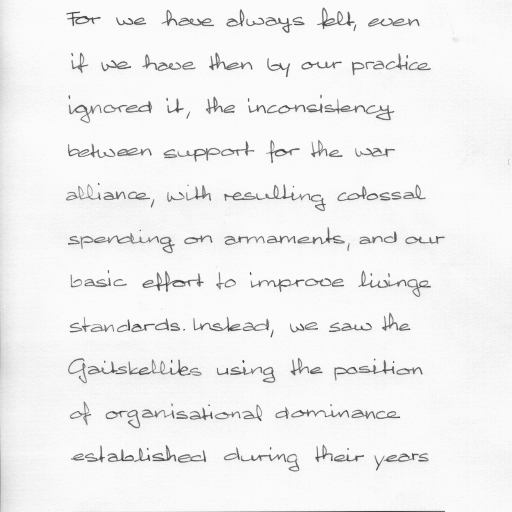 For we have always felt, even
if we have then by our practice
ignored it, the inconsistency
between support for the war
alliance, with resulting colossal
spending on armaments, and our
basic effort to improve livinge
standards. Instead, we saw the
Gaitskellites using the position
of organisational dominance
established during their years